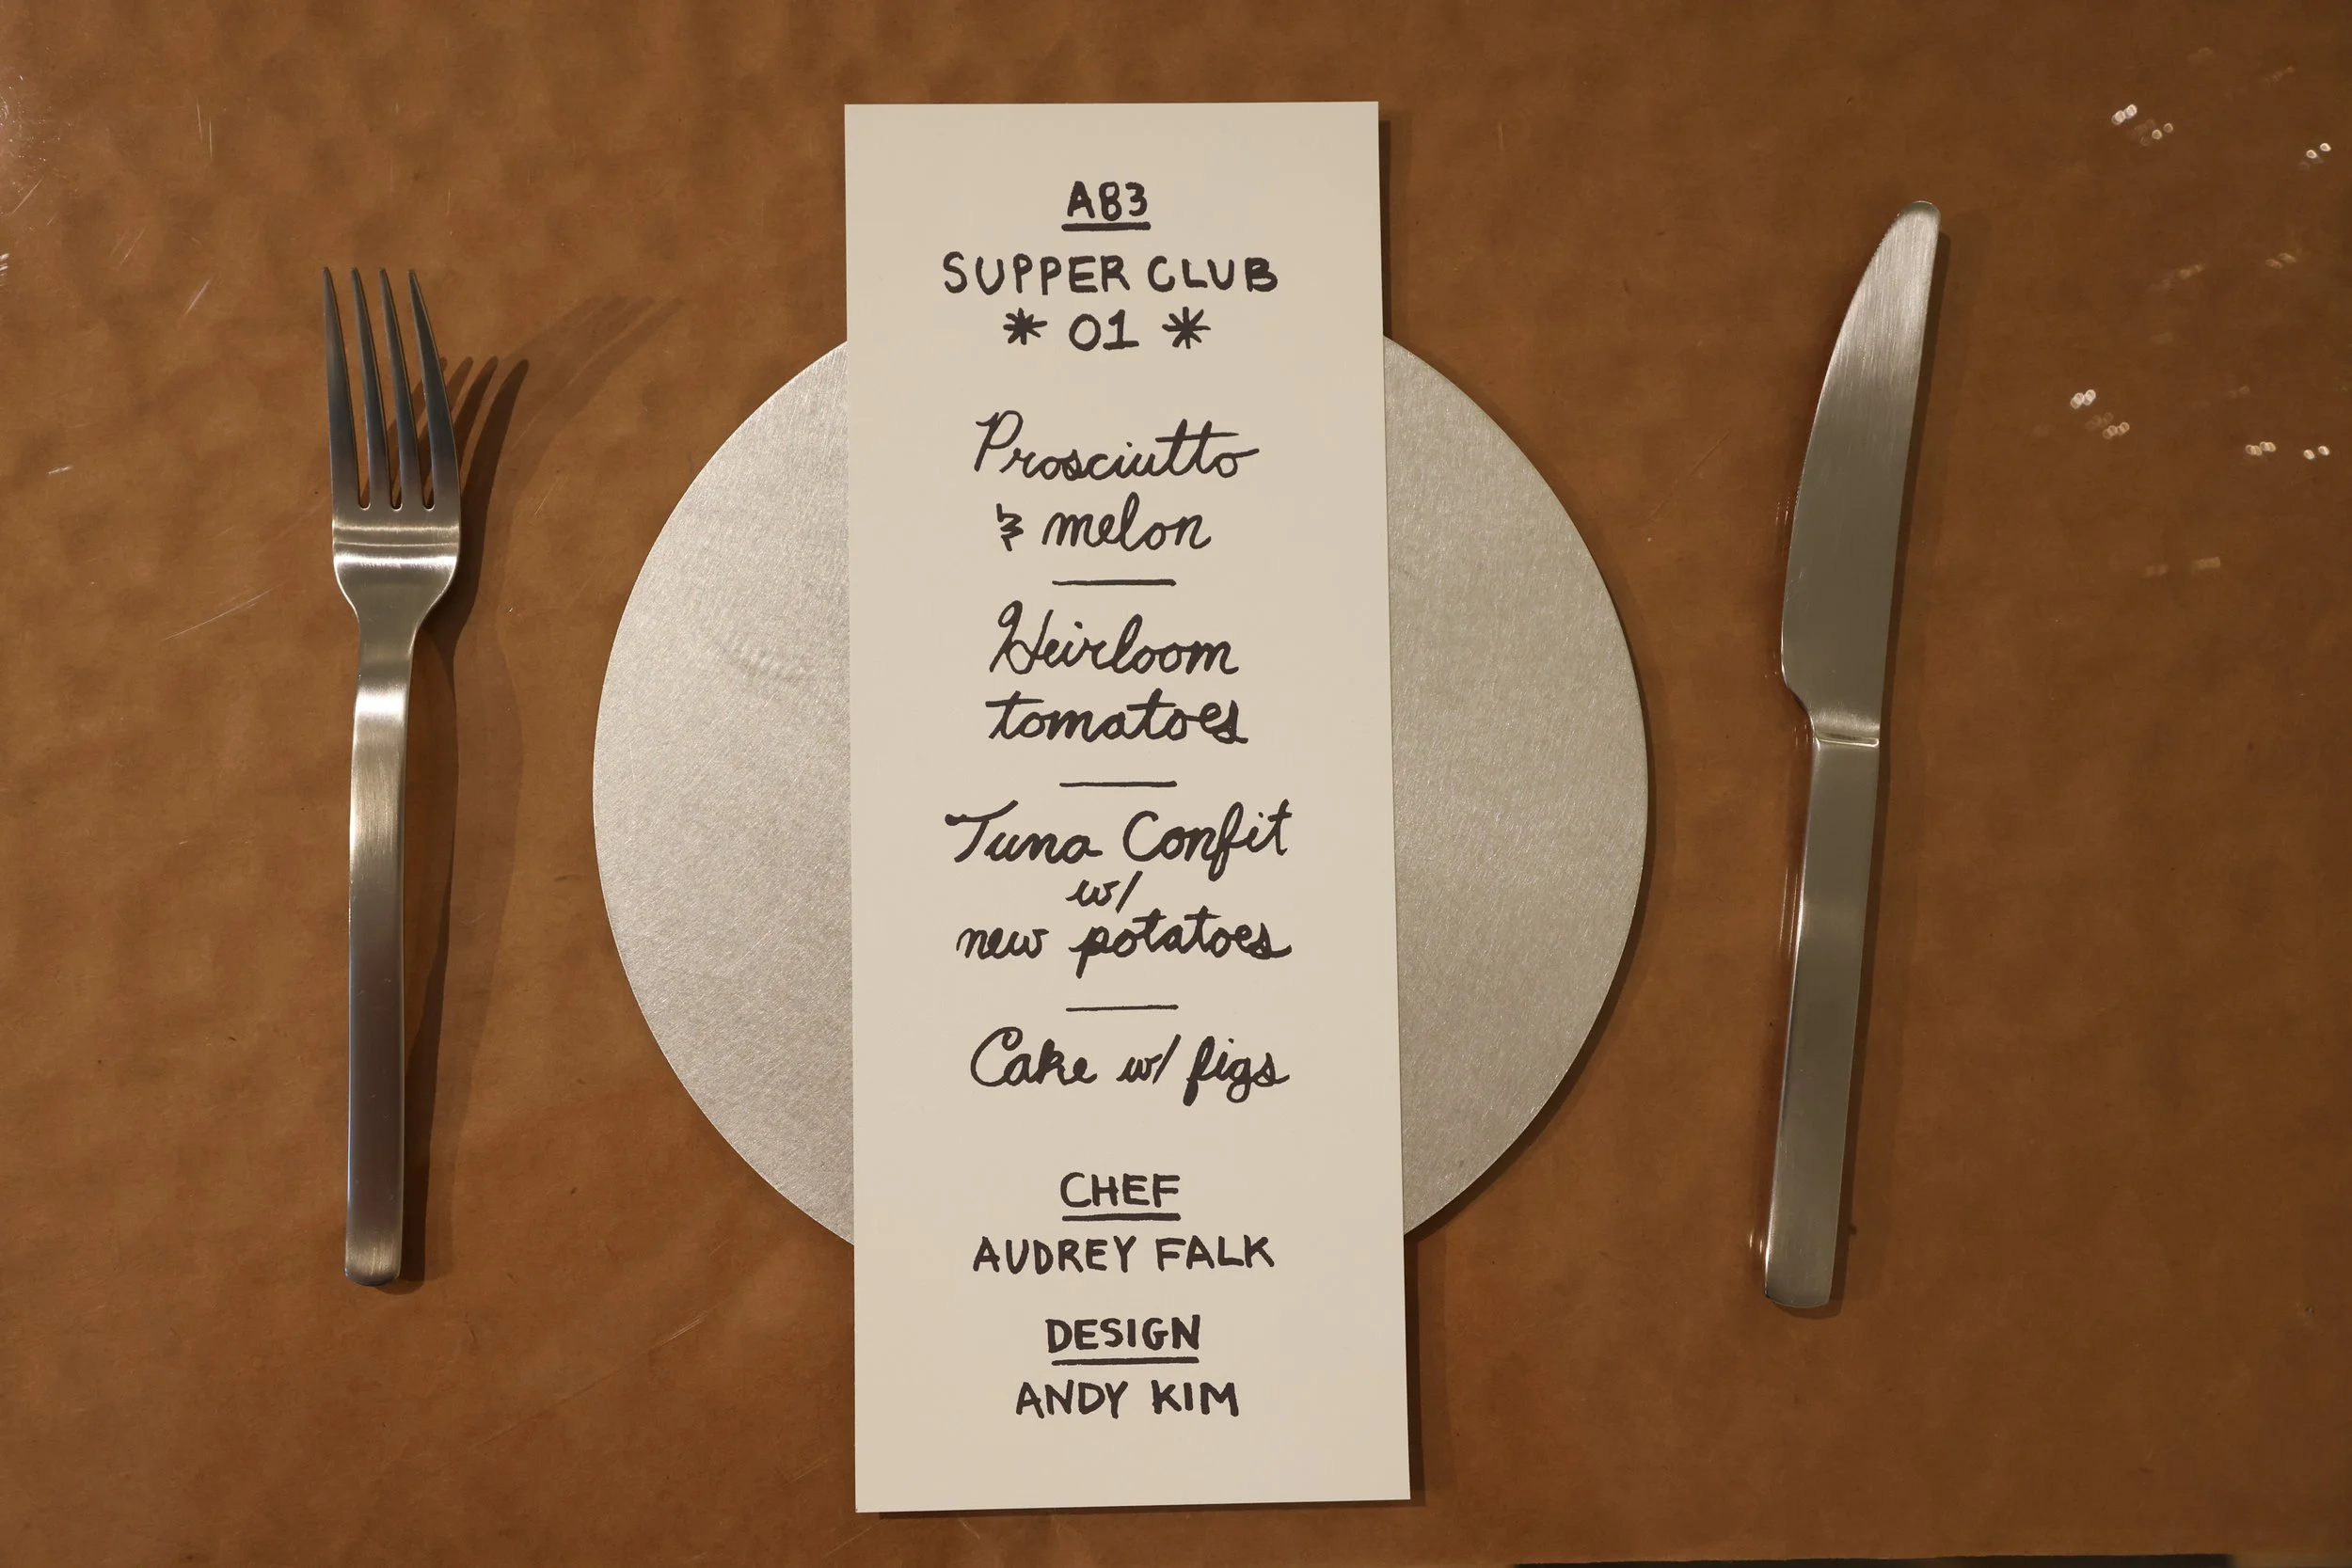 AB3
SUPPER CLUB
* 01 *
Prosciutto
& melon
Heirloom
tomatoes
Tuna Confit
w/
new potatoes
Cake w/ figs
CHEF
AUDREY FALK
DESIGN
ANDY KIM